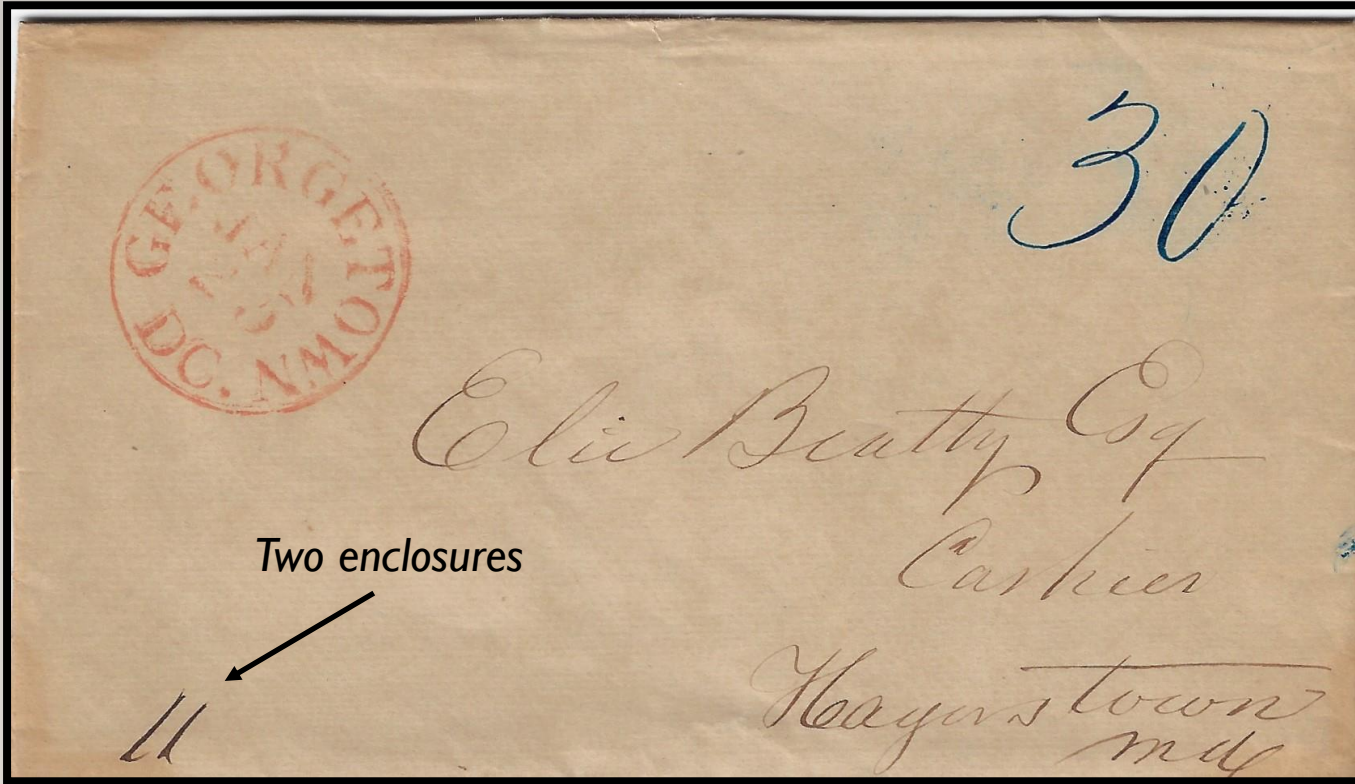 GEORGETOWN DC.
JAN
30
Elie Beatty Esq
Cashier
Hagerstown
Md
Two enclosures
11